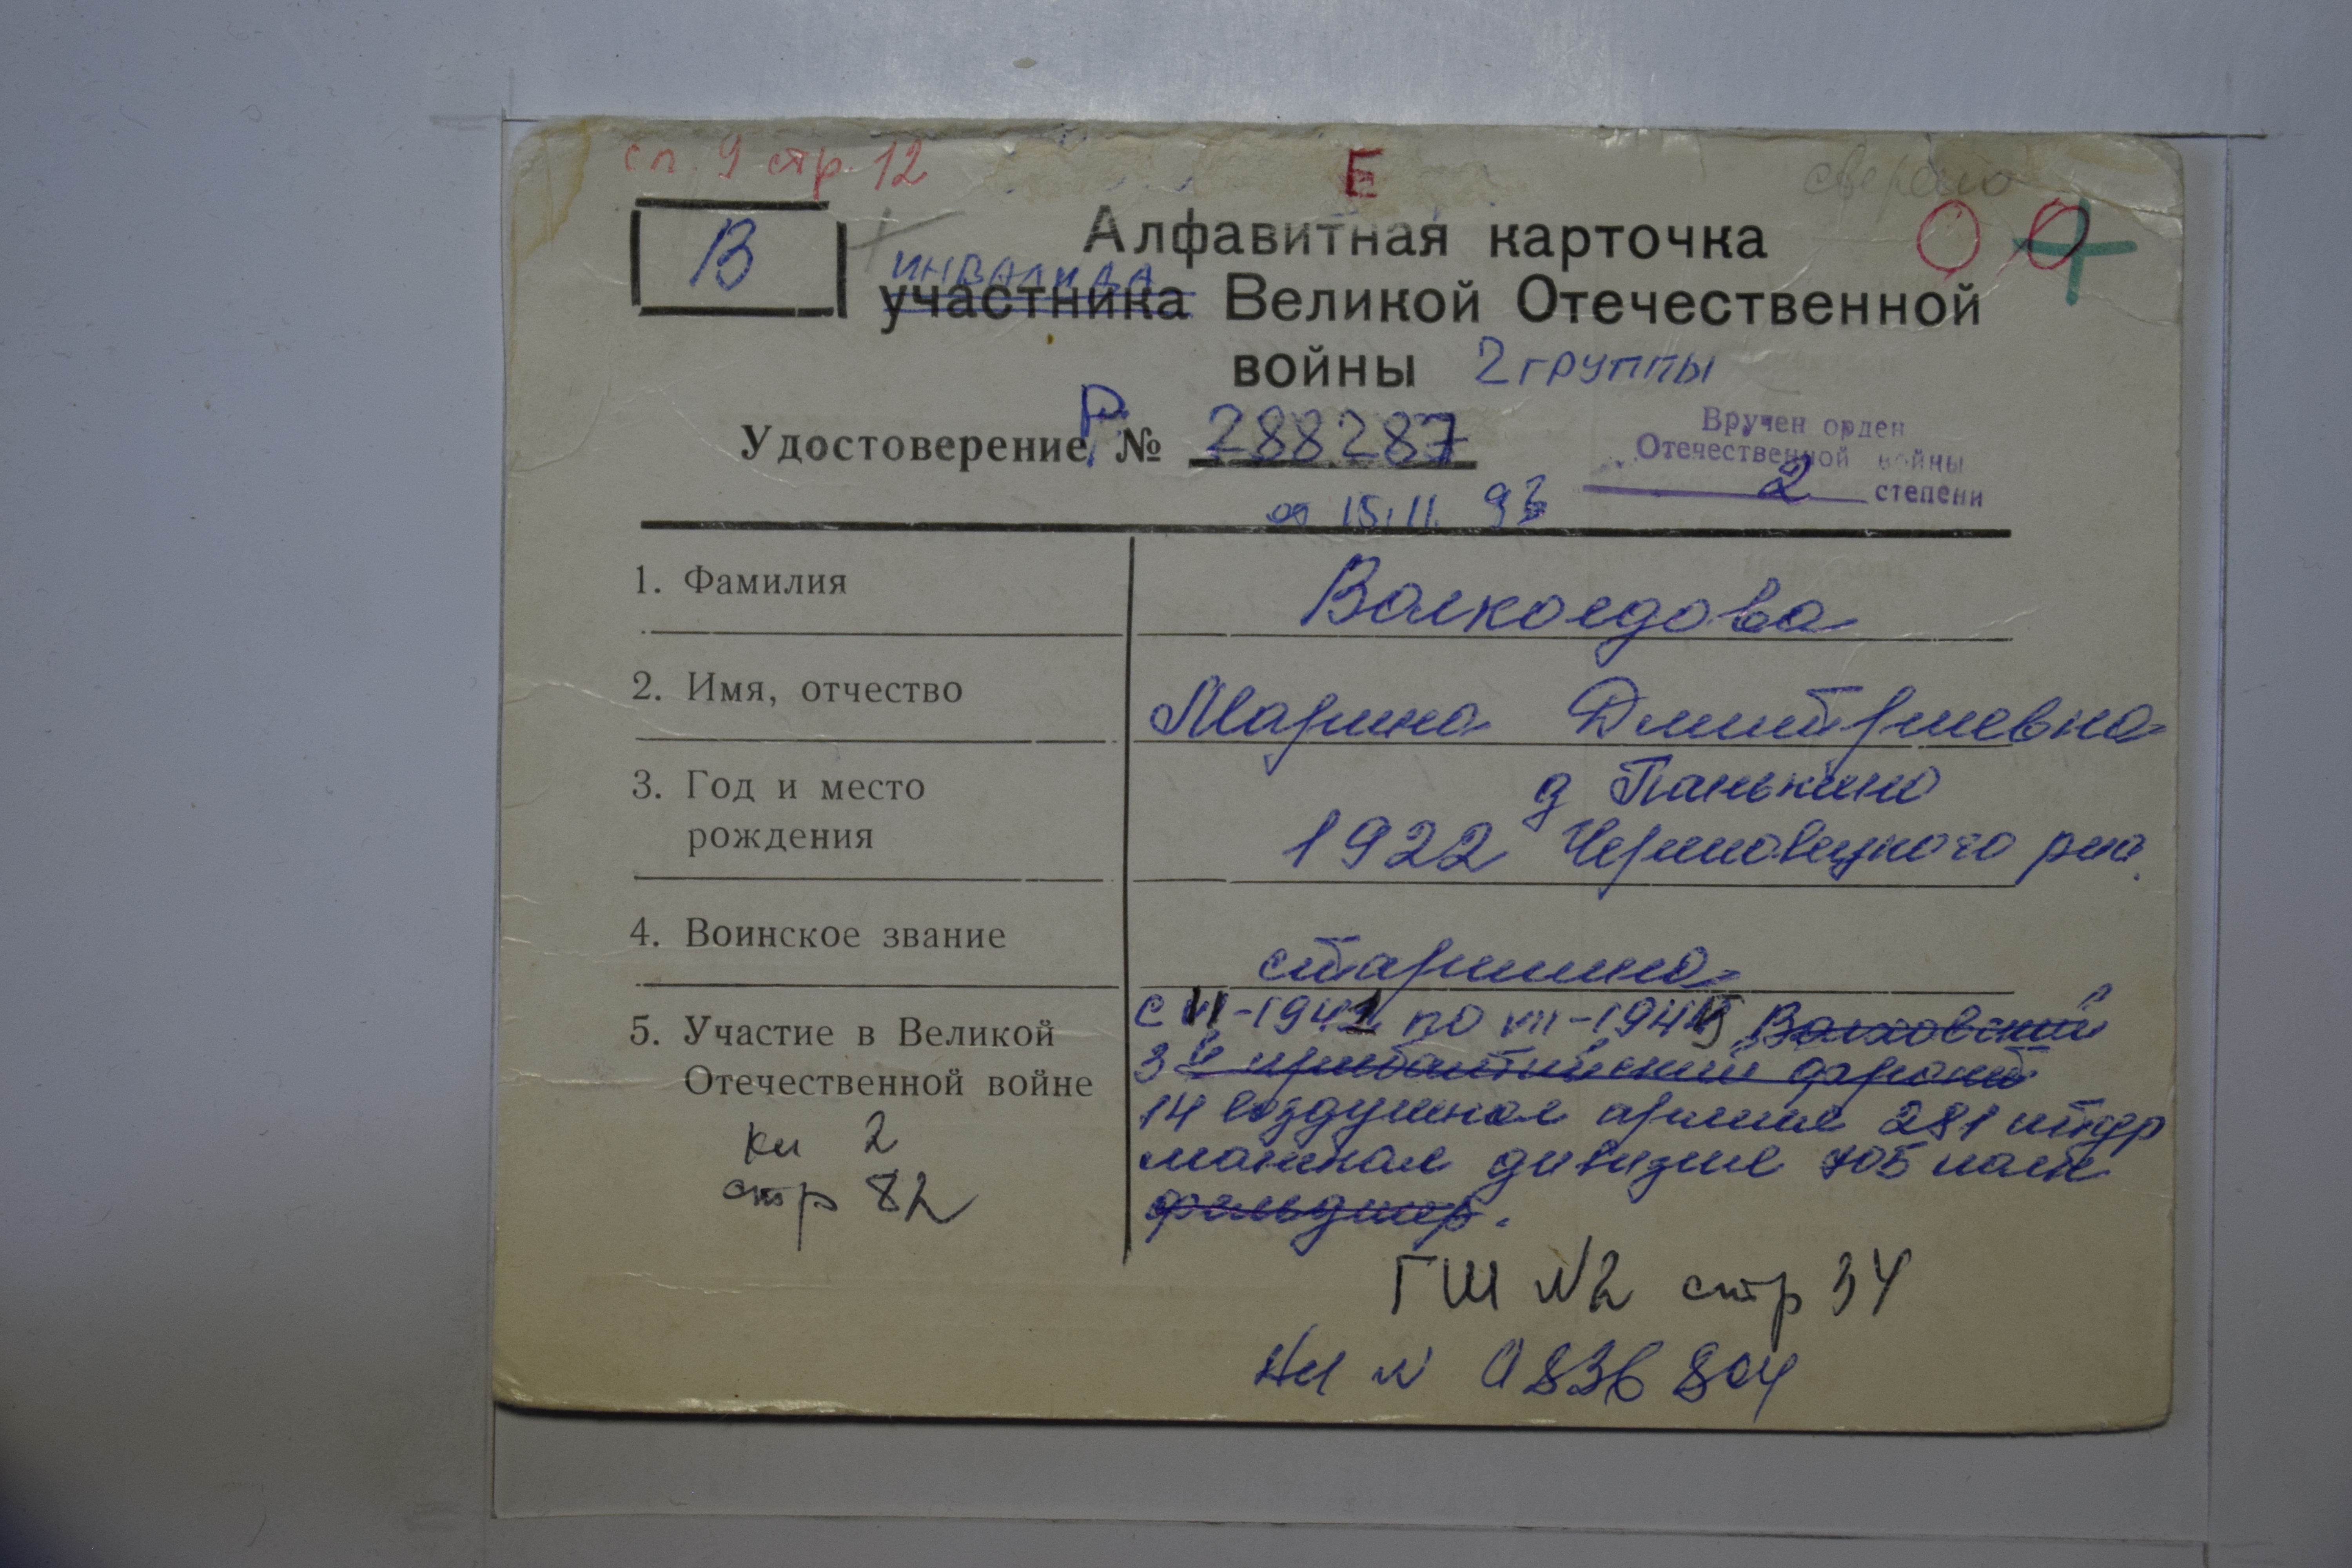 сп. 9 стр. 12
Е
сверено
В
Алфавитная карточка
инвалида
участника Великой Отечественной
войны 2 группы
Удостоверение Р № 288287
Вручен орден
Отечественной войны
2 степени
от 15.11. 93
1. Фамилия Волкоедова
2. Имя, отчество Марина Дмитриевна
3. Год и место
рождения
д Панькино
1922
4. Воинское звание старшина
5. Участие в Великой
Отечественной войне
с VI-1941 по VII-1945 Волховский
3й прибалтийский фронт
14 воздушная армия 281 штур
мовая дивизия 705 полк
фельдшер.
кн 2
стр 82
ГШ №2 стр 34
№ 0836804